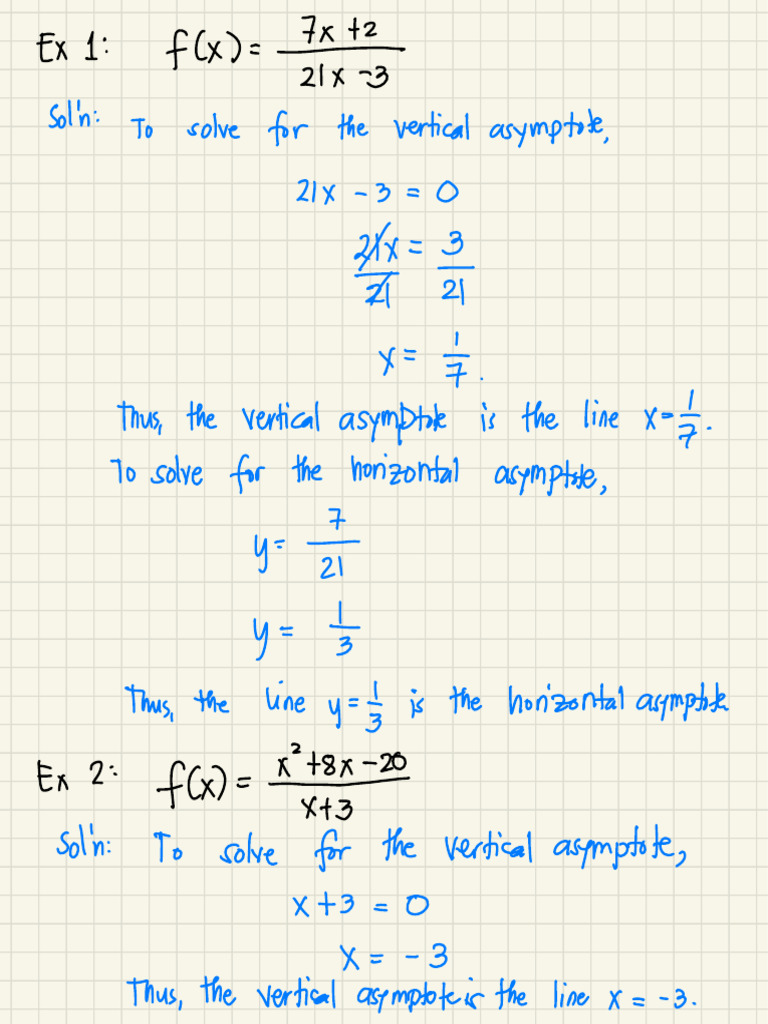 Ex 1: f(x) = (7x + 2)/(21x - 3)
Sol'n: To solve for the vertical asymptote,
21x - 3 = 0
21x/21 = 3/21
x = 1/7.
Thus, the vertical asymptote is the line x = 1/7.
To solve for the horizontal asymptote,
y = 7/21
y = 1/3
Thus, the line y = 1/3 is the horizontal asymptote
Ex 2: f(x) = (x² + 8x - 20)/(x + 3)
Sol'n: To solve for the vertical asymptote,
x + 3 = 0
x = -3
Thus, the vertical asymptote is the line x = -3.